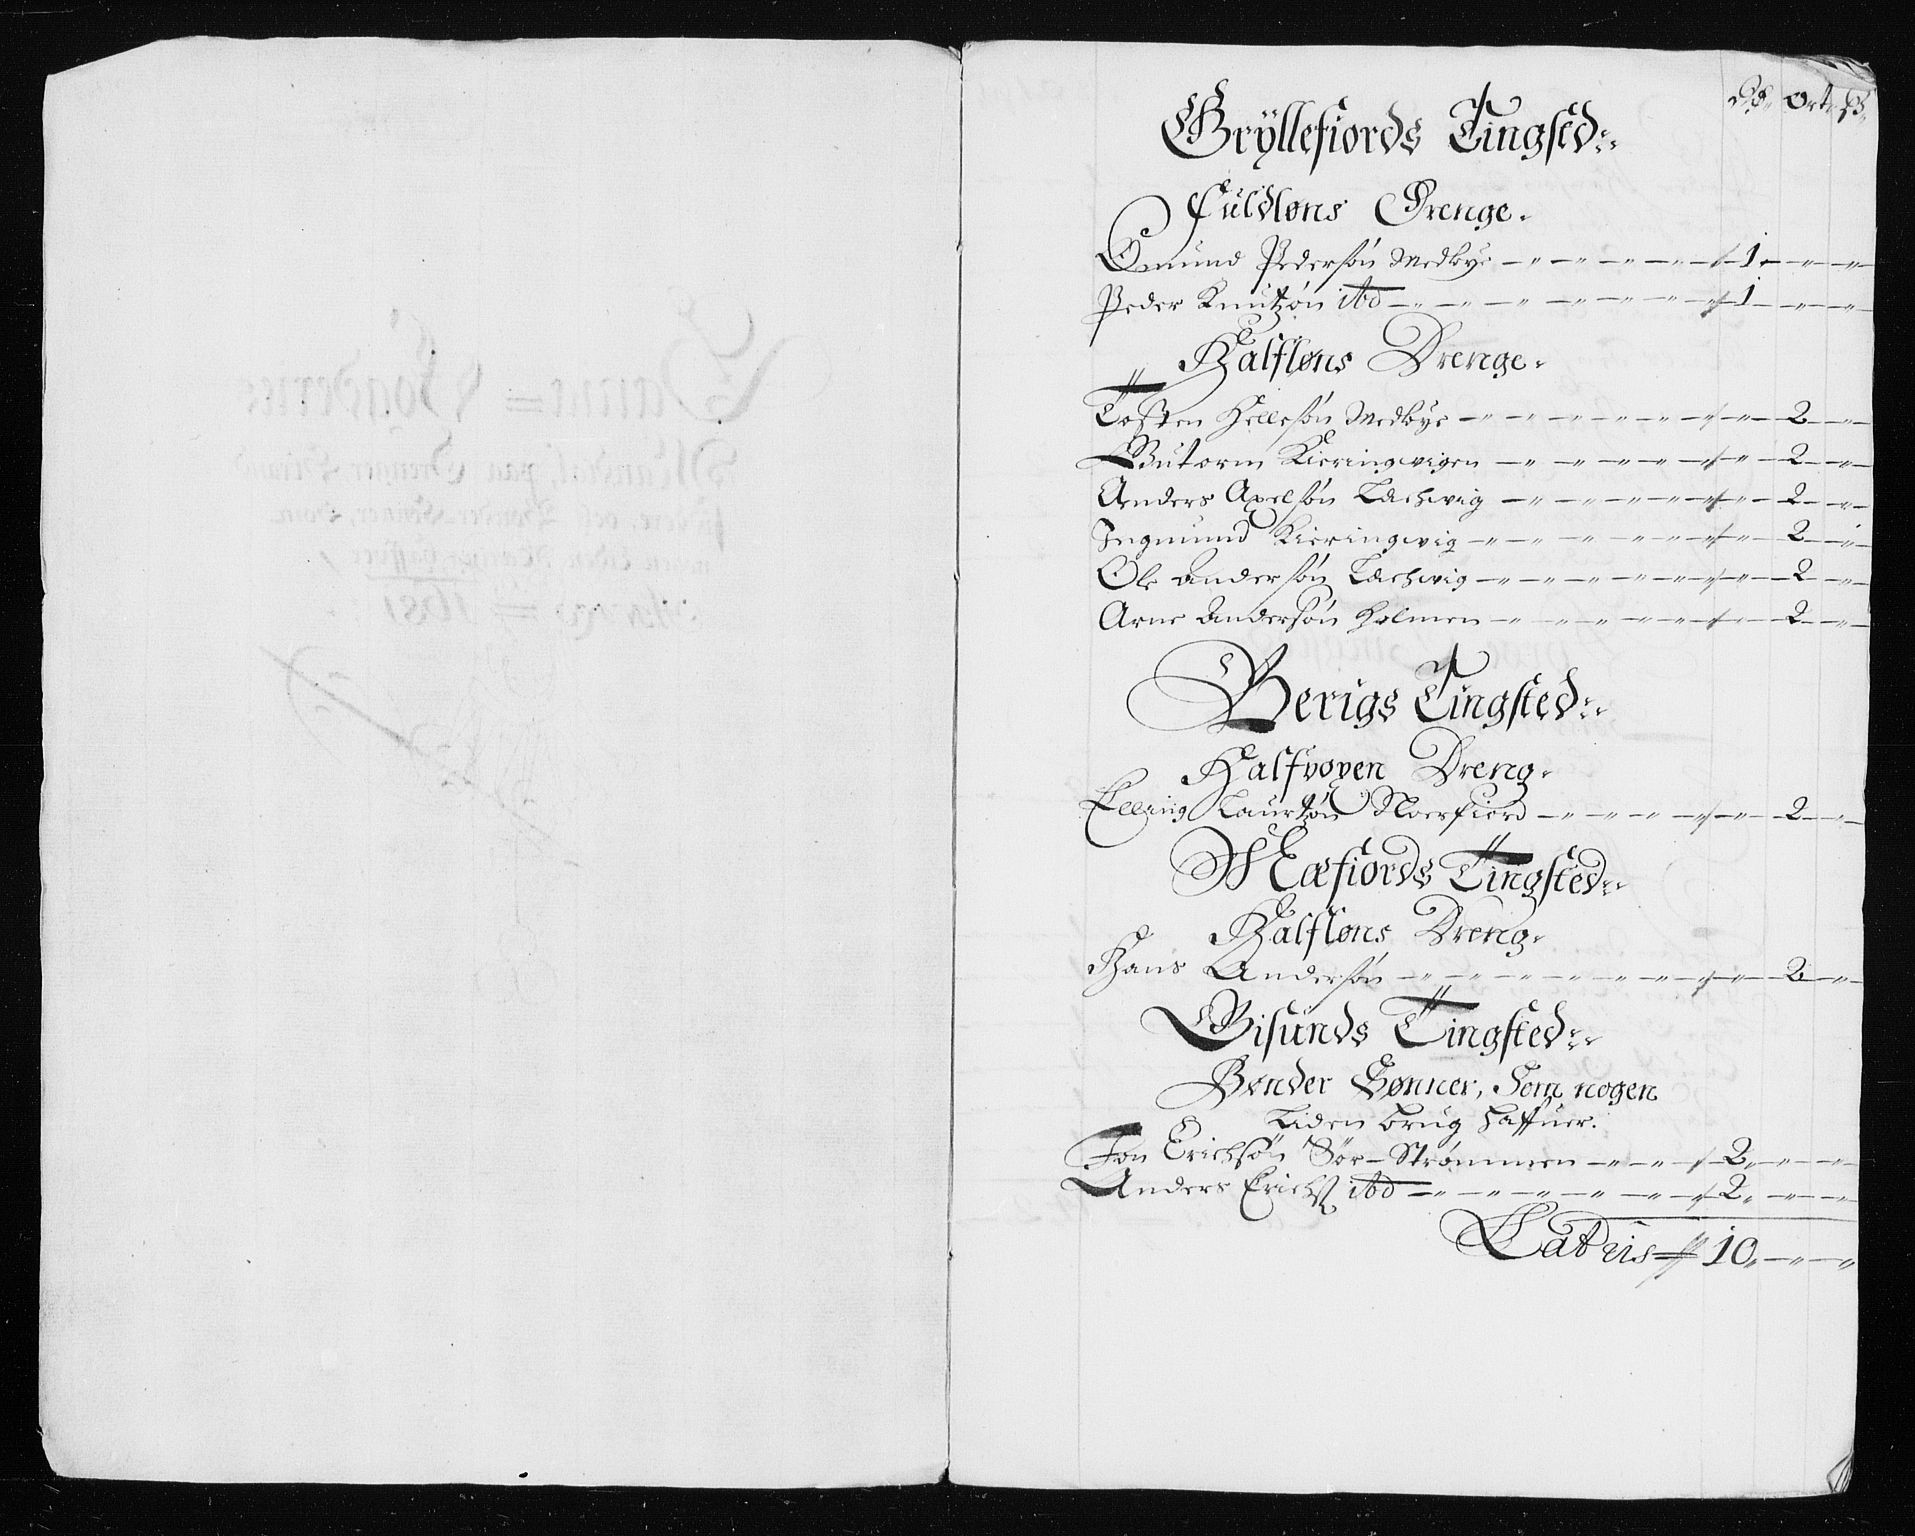 Rd. Ort. ß.
Gryllefiords Tingsted
Fuldløns Drenge.
Omund Pedersøn Medbye — 1 —
Peder Knutzøn ibd — 1 —
Halfløns Drenge.
Tosten Hellesøn Medbye — 2 —
Gutorm Kieringvigen — 2 —
Anders Axelsøn Lachwig — 2 —
Ingmund Kieringwig — 2 —
Ole Andersøn Lachwig — 2 —
Arne Andersøn Holmen — 2 —
Berigs Tingsted
Halfvoxen Dreng.
Elling Laurtzøn Noerfiord — 2 —
Mefiords Tingsted
Halfløns Dreng.
Hans Andersøn — 2 —
Gisunds Tingsted
Bønder Sønner, Som nogen
Liden brug haffuer.
Jon Erichsøn Sør-Strømmen — 2 —
Anders Erichs. ibd — 2 —
Latus — 10 —